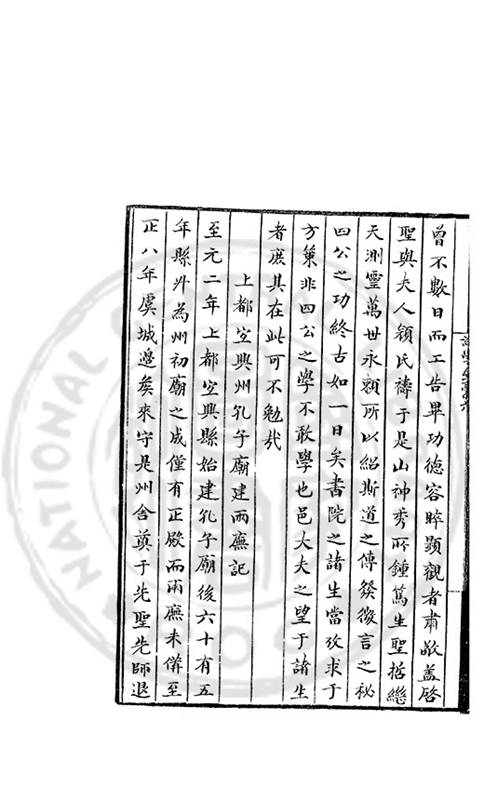 曾不數日而工告畢功德容睟顯觀者肅敬蓋啓
聖與夫人顏氏禱于是山神秀所鍾篤生聖哲繼
天測靈萬世永賴所以紹斯道之傳發微言之祕
四公之功終古如一日矣書院之諸生當攷求于
方筞非四公之學不敢學也邑大夫之望于諸生
者庶其在此可不勉哉
上都宜興州孔子廟建兩廡記
至元二年上都宜興縣始建孔子廟後六十有五
年縣升為州初廟之成僅有正殿而兩廡未備至
正八年虞城邊矣來守是州舍奠于先聖先師退
NATIONAL